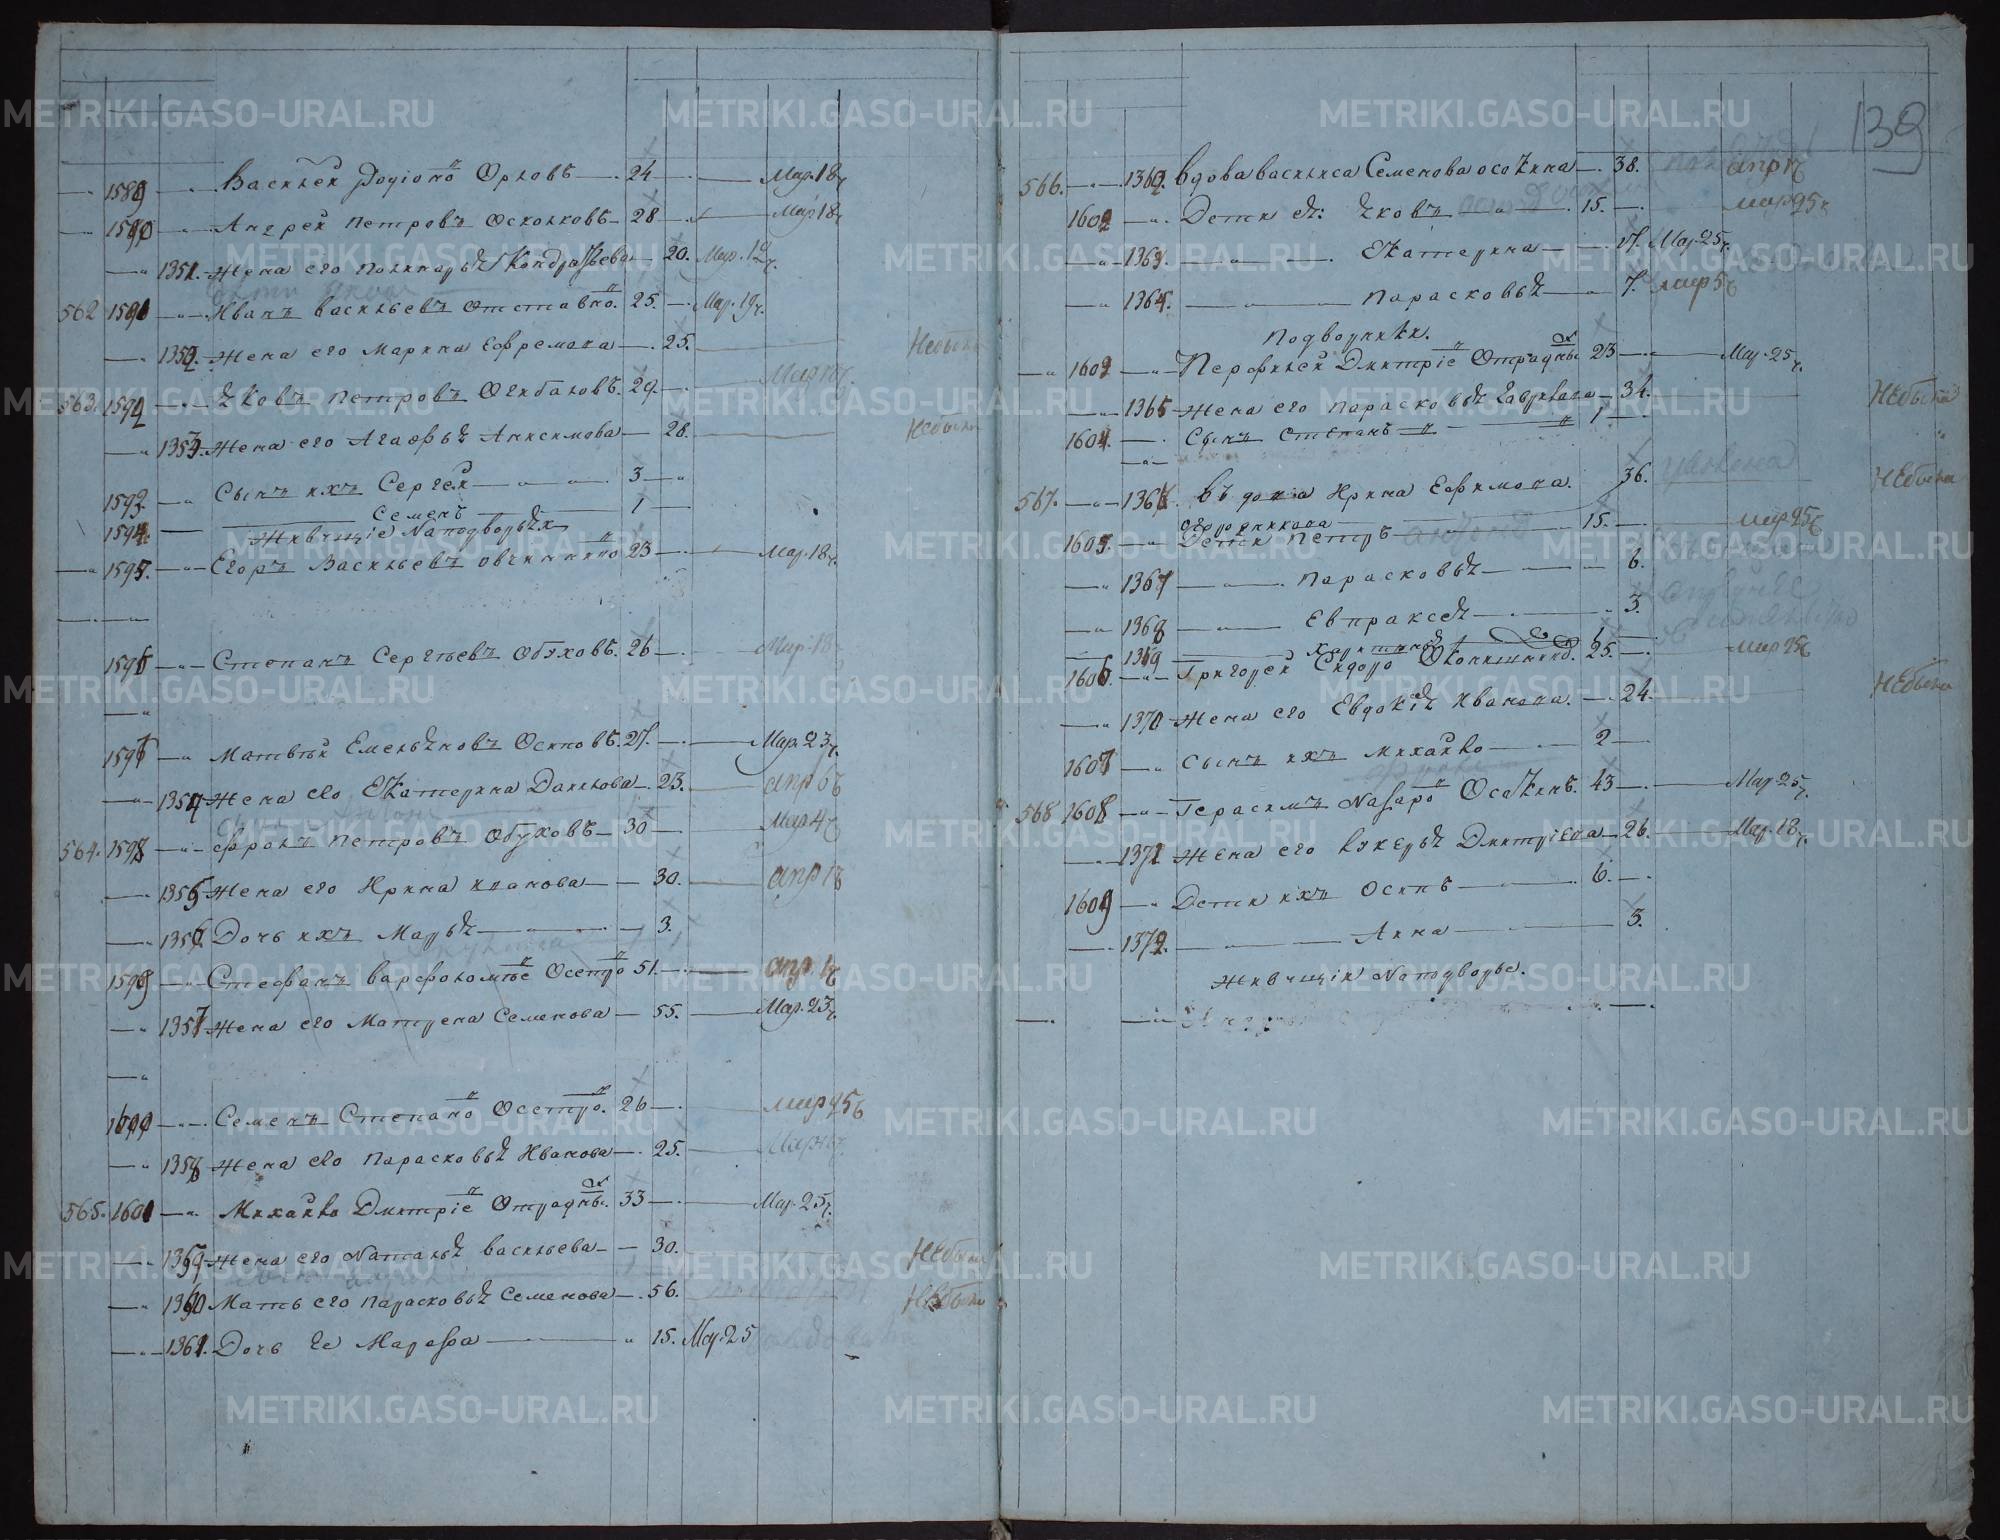 1589 Василей Родіоно Орловъ 24 Мар. 18
1590 Андрей Петровъ Осколковъ 28 Мар 18
1351. Жена его Полинарья Кондратьева 20. Мар. 19
562 1591 Иванъ Васильевъ Отставно. 25. Мар. 19
1352. Жена его Марина Ефремова 25. Небыла
563. 1592 Яковъ Петровъ Огибаловъ. 29. Мар 18
1353. Жена его Агафья Анисимова 28. Небыла
1593 Сынъ ихъ Сергей 3
1594 Семенъ 1
Живущіе на подворьѣ
1595. Егоръ Васильевъ Овчинино 23 Мар. 18
1596 Степанъ Сергѣевъ Обуховъ. 26 Мар. 18
1597 Матвѣй Емельяновъ Осиповъ. 27. Мар. 23
1354 Жена его Екатерина Данилова 23. апр 6
564. 1598 Фролъ Петровъ Обуховъ 30 Мар 4
1355 Жена его Ирина Иванова 30. апр 1
1356 Дочь ихъ Марья 3.
1599 Стефанъ Варфоломѣе Осетро 51. апр. 1
1357 Жена его Матрена Семенова 55. Мар. 23
1600 Семенъ Степано Осетро. 26 мар 25
1358 Жена его Парасковья Иванова 25.
565. 1601 Михайло Дмитріе Отрадны. 33 Мар. 25
1359 Жена его Наталья Васильева 30. Небыла
1360 Мать его Парасковья Семенова 56. Небыла
1361. Дочь ея Марфа 15. Мар. 25
139
566. 1362. Вдова Василиса Семенова Осокина 38. апр
1602 Дети ея: Яковъ 15. мар 25
1363. Екатерина 17. Мар. 25
1364. Парасковья 7. мар 5
Подворники.
1603 Перфилей Дмитріе Отрадны. 23 Мар. 25
1365 Жена его Парасковья Гаврилова 34. Небыла
1604. Сынъ Степанъ 1
567. 1366 Вдова Ирина Ефимова. 36. Небыла
Огородникова
1605. Дети Петръ 15. мар 25
1367 Парасковья 6.
1368 Евпраксея 3.
1369 Харитинья 1
1606. Григорей Сидоро Околишнико. 25. мар 25
1370 Жена его Евдокія Иванова. 24. Небыла
1607 Сынъ ихъ Михайло 2
568 1608 Герасимъ Назаро Осокинъ. 43 Мар. 25
1371 Жена его Гликерья Дмитріева 26. Мар. 18
1609 Дети ихъ Осипъ 6.
1372. Анна 3.
Живущіи на подворье.
METRIKI.GASO-URAL.RU